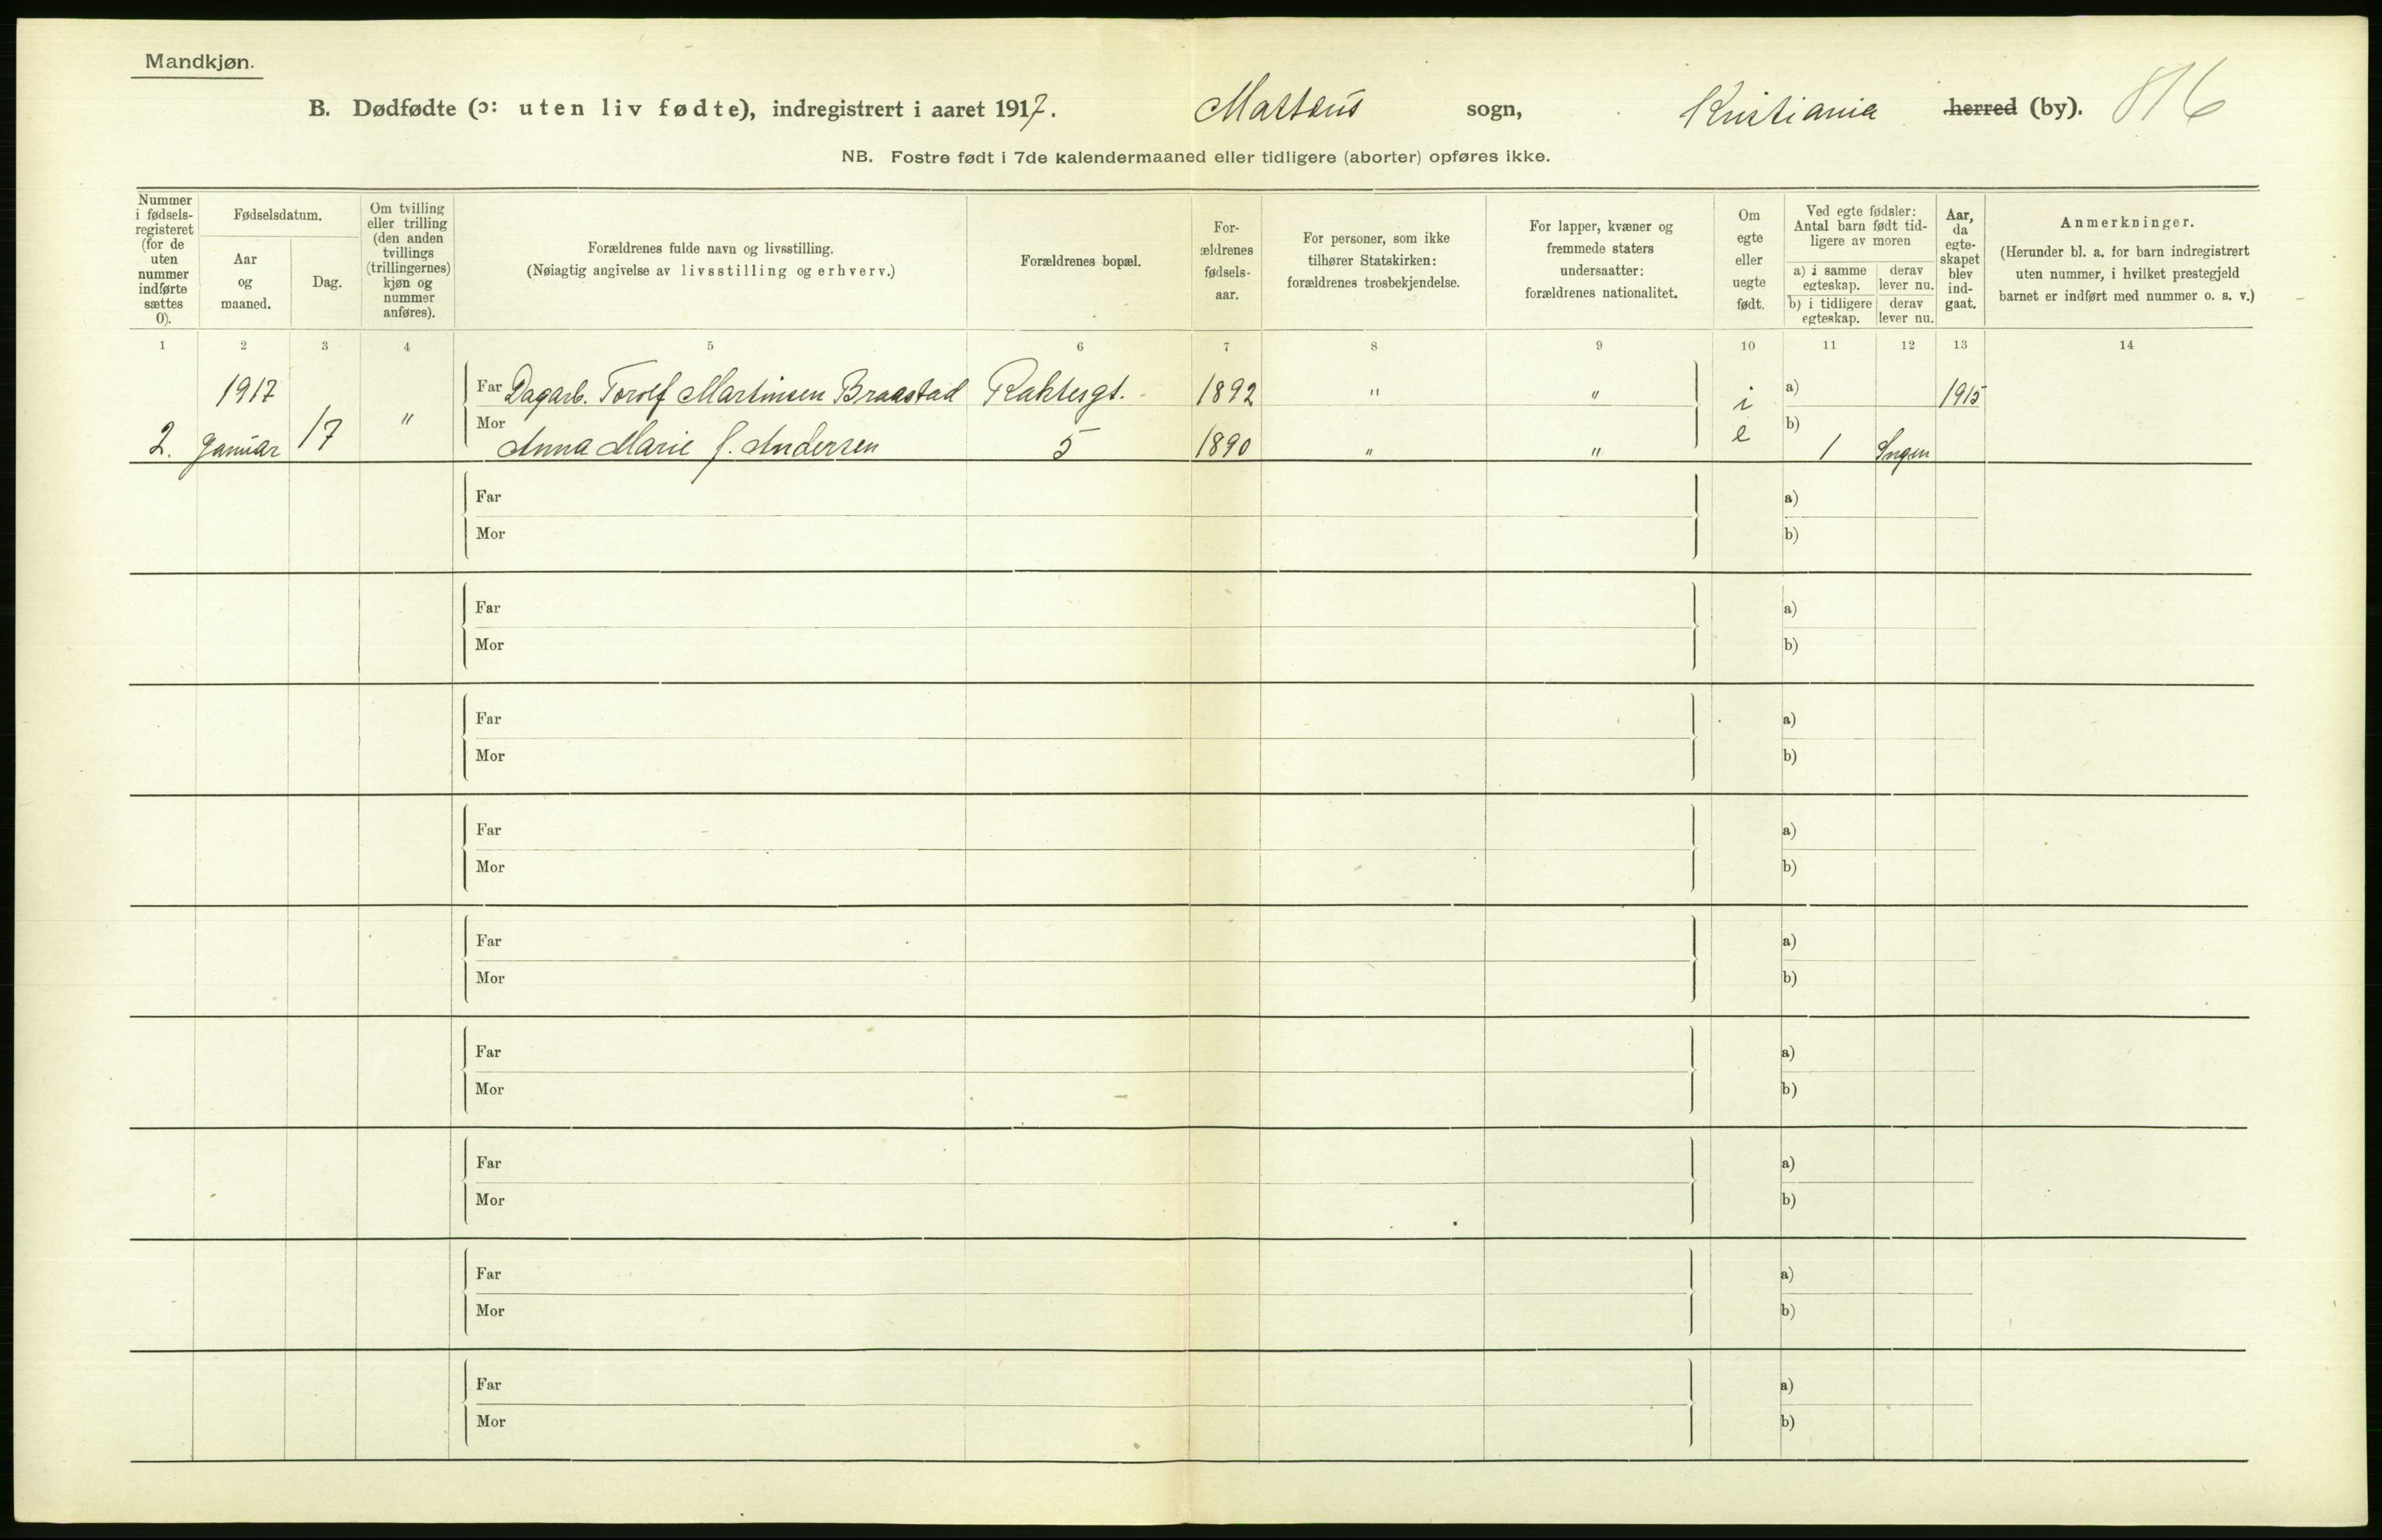 Mandkjøn.
B. Dødfødte (ɔ: uten liv fødte), indregistrert i aaret 1917. Mattæus sogn, Kristiania herred (by). 816
NB. Fostre født i 7de kalendermaaned eller tidligere (aborter) opføres ikke.
Nummer
i fødsels-
registeret
(for de
uten
nummer
indførte
sættes
0).
Fødselsdatum.
Aar
og
maaned.
Dag.
Om tvilling
eller trilling
(den anden
tvillings
(trillingernes)
kjøn og
nummer
anføres).
Forældrenes fulde navn og livsstilling.
(Nøiagtig angivelse av livsstilling og erhverv.)
Forældrenes bopæl.
For-
ældrenes
fødsels-
aar.
For personer, som ikke
tilhører Statskirken:
forældrenes trosbekjendelse.
For lapper, kvæner og
fremmede staters
undersaatter:
forældrenes nationalitet.
Om
egte
eller
uegte
født.
Ved egte fødsler:
Antal barn født tid-
ligere av moren
a) i samme
egteskap.
derav
lever nu.
b) i tidligere
egteskap.
derav
lever nu.
Aar,
da
egte-
skapet
blev
ind-
gaat.
Anmerkninger.
(Herunder bl. a. for barn indregistrert
uten nummer, i hvilket prestegjeld
barnet er indført med nummer o. s. v.)
1 2 3 4 5 6 7 8 9 10 11 12 13 14
1917 Far Dagarb. Torolf Martinsen Braastad 1892 " " i a) 1915
2. Januar 17 " Mor Anna Marie f. Andersen 5 1890 " " e b) 1 Ingen
Far a)
Mor b)
Far a)
Mor b)
Far a)
Mor b)
Far a)
Mor b)
Far a)
Mor b)
Far a)
Mor b)
Far a)
Mor b)
Far a)
Mor b)
Far a)
Mor b)